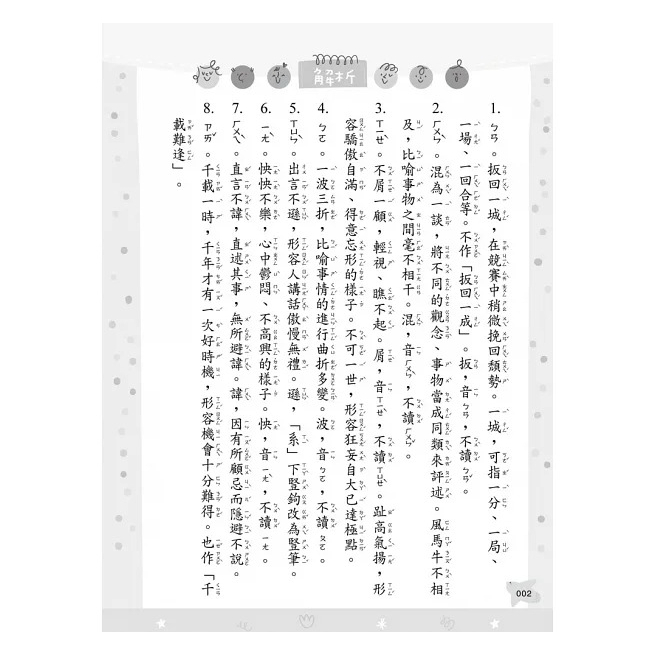 解析
1. ㄅㄢ。扳回一城，在競賽中稍微挽回頹勢。一城，可指一分、一局、
一場、一回合等。不作「扳回一成」。扳，音ㄅㄢ，不讀ㄅㄢˇ。
2. ㄏㄨㄣˋ。混為一談，將不同的觀念、事物當成同類來評述。風馬牛不相
及，比喻事物之間毫不相干。混，音ㄏㄨㄣˋ，不讀ㄏㄨㄣˇ。
3. ㄒㄧㄝˋ。不屑一顧，輕視、瞧不起。屑，音ㄒㄧㄝˋ，不讀ㄒㄩㄝˋ。趾高氣揚，形
容驕傲自滿、得意忘形的樣子。不可一世，形容狂妄自大已達極點。
4. ㄅㄛ。一波三折，比喻事情的進行曲折多變。波，音ㄅㄛ，不讀ㄆㄛ。
5. ㄒㄩㄣˋ。出言不遜，形容人講話傲慢無禮。遜，「系」下豎鉤改為豎筆。
6. ㄧㄤˋ。怏怏不樂，心中鬱悶、不高興的樣子。怏，音ㄧㄤˋ，不讀ㄧㄤ。
7. ㄏㄨㄟˋ。直言不諱，直述其事，無所避諱。諱，因有所顧忌而隱避不說。
8. ㄗㄞˇ。千載一時，千年才有一次好時機，形容機會十分難得。也作「千
載難逢」。
002